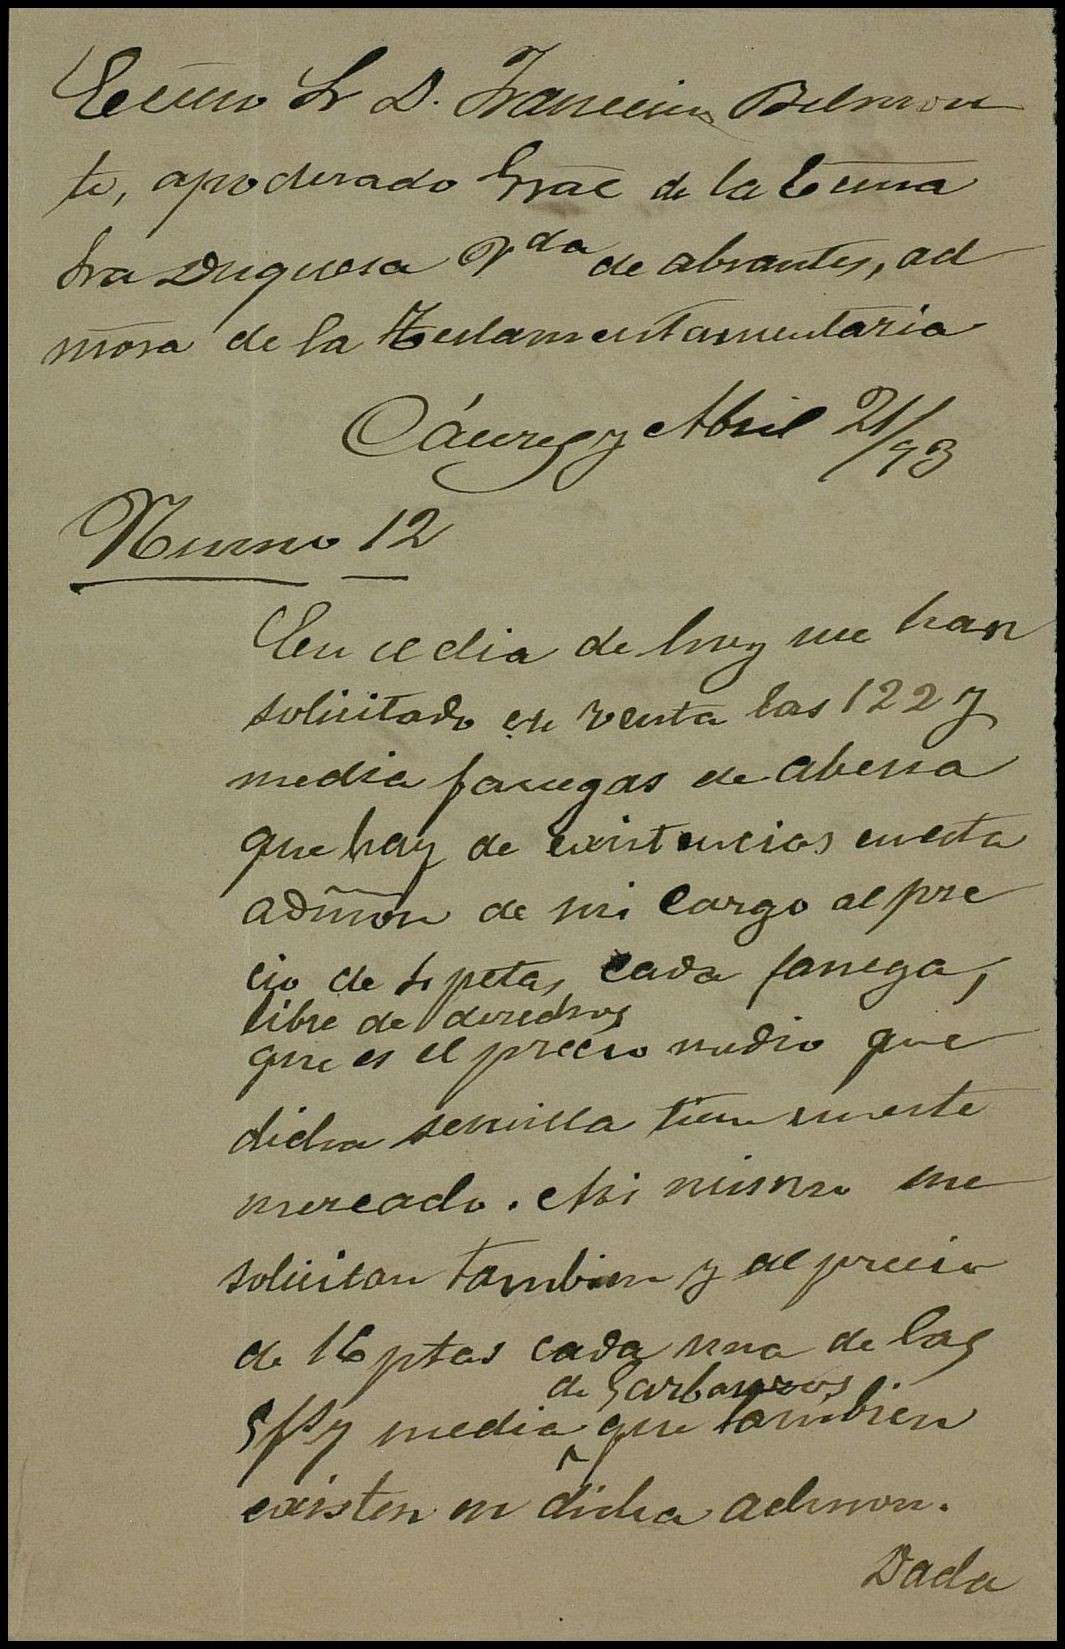 Ecmo Sr D. Francisco Belmon
te, apoderado Gral de la Ecma
Sra Duquesa Vda de abrantes, ad
mora de la Testamentamentaria
Cáceres y Abril 21/93
Numo 12
En el dia de hoy me han
solicitado en venta las 122 y
media fanegas de abena
que hay de existencias en esta
admon de mi cargo al pre
cio de 4 petas cada fanega,
libre de derechos
que es el precio medio que
dicha semilla tiene en este
mercado. Asi mismo me
solicitan tambien y al precio
de 16 ptas cada una de las
de Garbanzos
5 fs y media que tambien
existen en dicha admon.
Dada